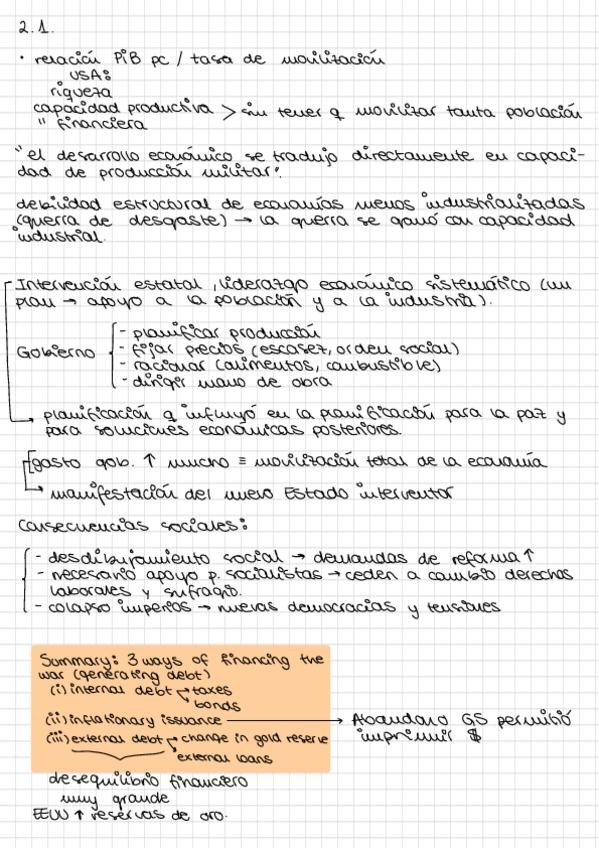 2.1.
· relación PiB pc / tasa de movilización
USA:
riqueza
capacidad productiva > sin tener q movilizar tanta población
" financiera
"el desarrollo económico se tradujo directamente en capaci-
dad de producción militar".
debilidad estructural de economías menos industrializadas
(guerra de desgaste) → la guerra se ganó con capacidad
industrial.
Intervención estatal, liderazgo económico sistemático (un
plan → apoyo a la población y a la industria).
Gobierno
- planificar producción
- fijar precios (escasez, orden social)
- racionar (alimentos, combustible)
- dirigir mano de obra
→ planificación q influyó en la planificación para la paz y
para soluciones económicas posteriores.
gasto gob. ↑ mucho ≡ movilización total de la economía
→ manifestación del nuevo Estado interventor
Consecuencias sociales:
- desdibujamiento social → demandas de reforma ↑
- necesario apoyo p. socialistas → ceden a cambio derechos
laborales y sufragio.
- colapso imperios → nuevas democracias y tensiones
Summary: 3 ways of financing the
war (generating debt)
(i) internal debt → taxes
→ bonds
(ii) inflationary issuance → Abandono GS permitió
imprimir $
(iii) external debt → change in gold reserve
→ external loans
desequilibrio financiero
muy grande
EEUU ↑ reservas de oro.